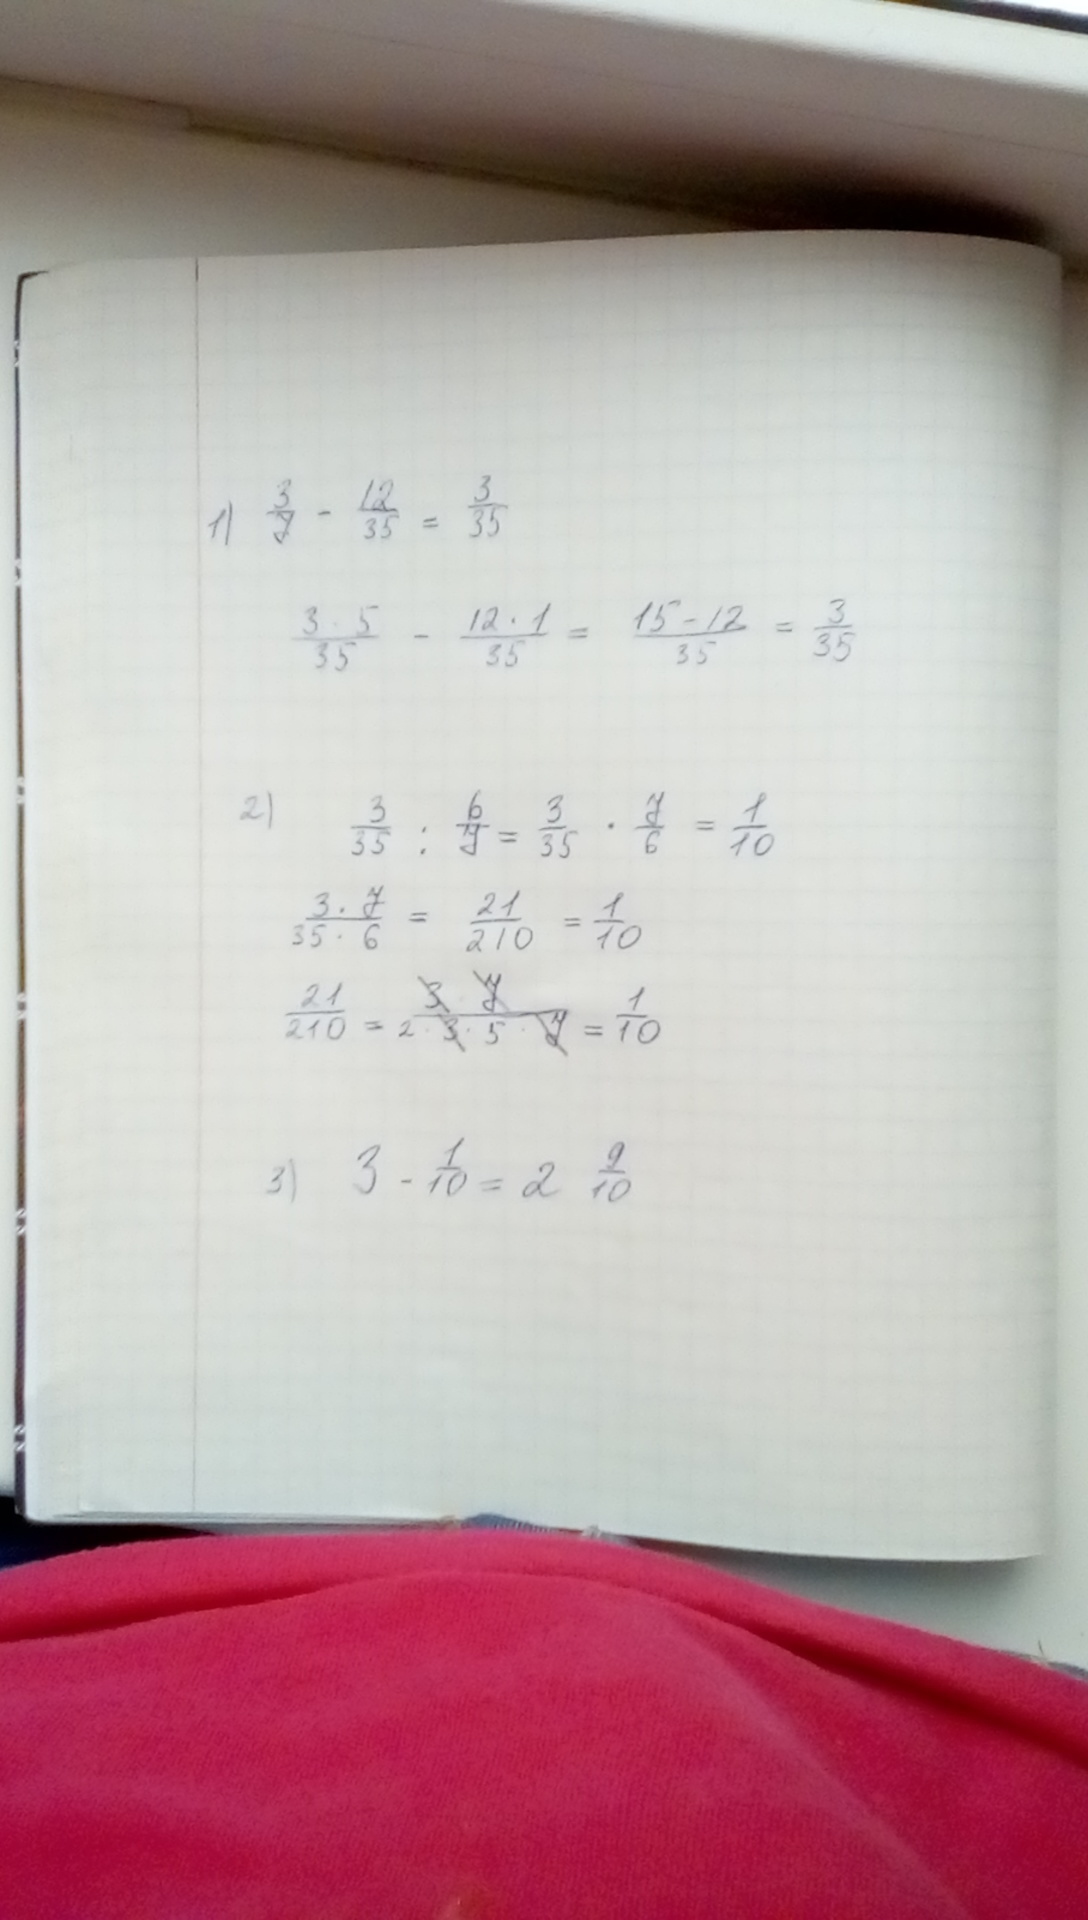 1) 3/7 - 12/35 = 3/35
3 · 5/35 - 12 · 1/35 = 15 - 12/35 = 3/35
2) 3/35 : 6/7 = 3/35 · 7/6 = 1/10
3 · 7/35 · 6 = 21/210 = 1/10
21/210 = 3 · 7/2 · 3 · 5 · 7 = 1/10
3) 3 - 1/10 = 2 9/10